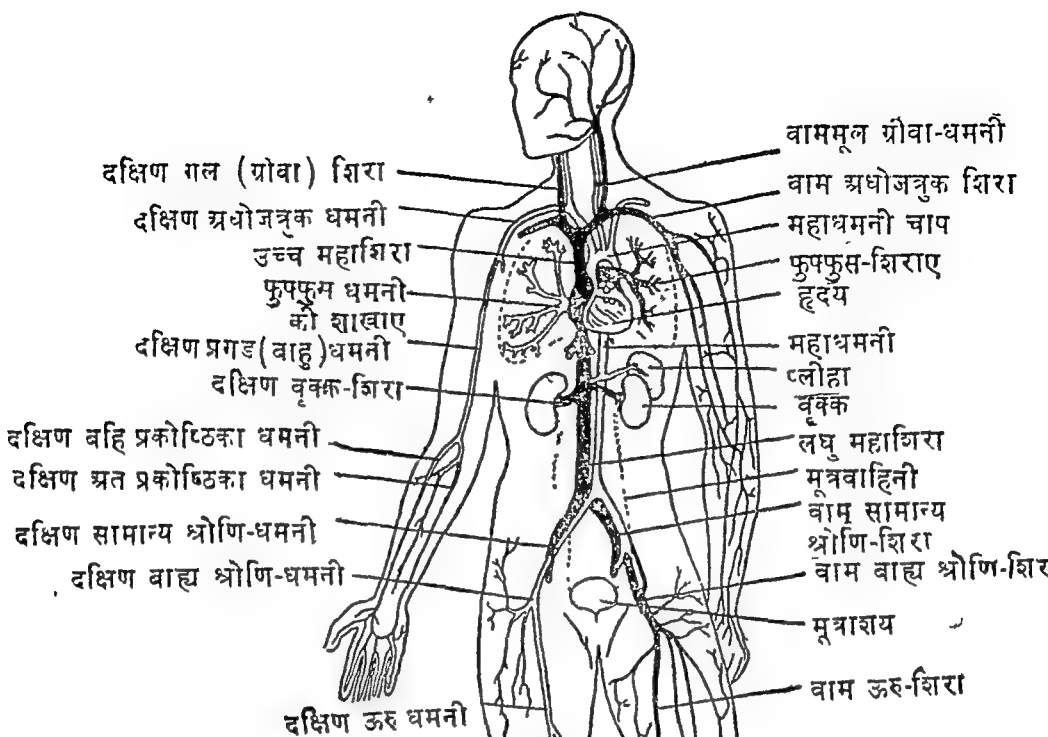 दक्षिण गल (ग्रोवा) शिरा
दक्षिण अधोजत्रुक धमनी
उच्च महाशिरा
फुफ्फुस धमनी
की शाखाए
दक्षिण प्रगड (वाहु) धमनी
दक्षिण वृक्क-शिरा
दक्षिण वहि प्रकोष्ठिका धमनी
दक्षिण अत प्रकोष्ठिका धमनी
दक्षिण सामान्य श्रोणि-धमनी
दक्षिण वाह्य श्रोणि-धमनी
दक्षिण ऊरु धमनी
वाममूल ग्रीवा-धमनी
वाम अधोजत्रुक शिरा
महाधमनी चाप
फुफ्फुस-शिराए
हृदय
महाधमनी
प्लीहा
वृक्क
लघु महाशिरा
मूत्रवाहिनी
वाम सामान्य
श्रोणि-शिरा
वाम वाह्य श्रोणि-शिर
मूत्राशय
वाम ऊरु-शिरा